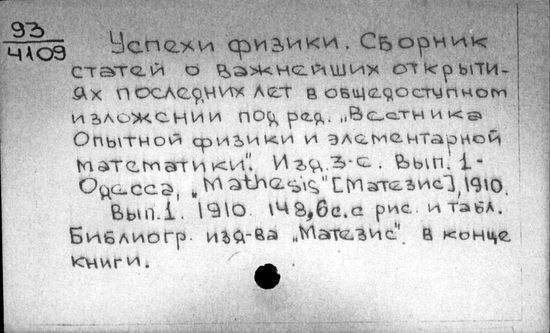 93
4109
Успехи физики. Сборник
статей о важнейших открыти-
ях последних лет в общедоступном
изложении под ред. „Вестника
Опытной физики и элементарной
математики". Изд. 3-е. Вып. 1-
Одесса, „Mathesis" [Матезис], 1910.
Вып. 1. 1910. 148, 6 с. с рис. и табл.
Библиогр. изд-ва „Матезис" в конце
книги.